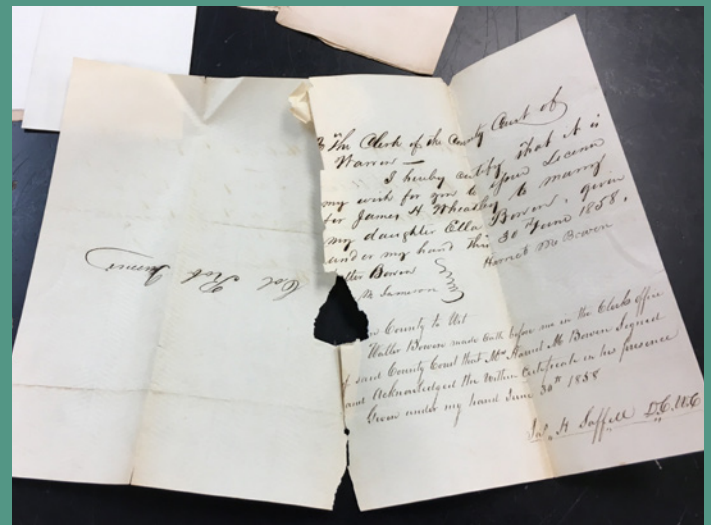 To the Clerk of the County Court of
Warren —
I hereby certify that it is
my wish for you to issue License
for James H Wheatley to marry
my daughter Ella Bowen, given
under my hand this 30 June 1858.
Harriet M Bowen
lter Bowen
M Jameson
County to Wit
Walter Bowen made Oath before me in the Clerks Office
of said County Court that Mrs Harriet M Bowen Signed
and Acknowledged the Within Certificate in his presence
Given under my hand June 30th 1858
Jas. H Saffell D.C.W.C
Col Rob Turner